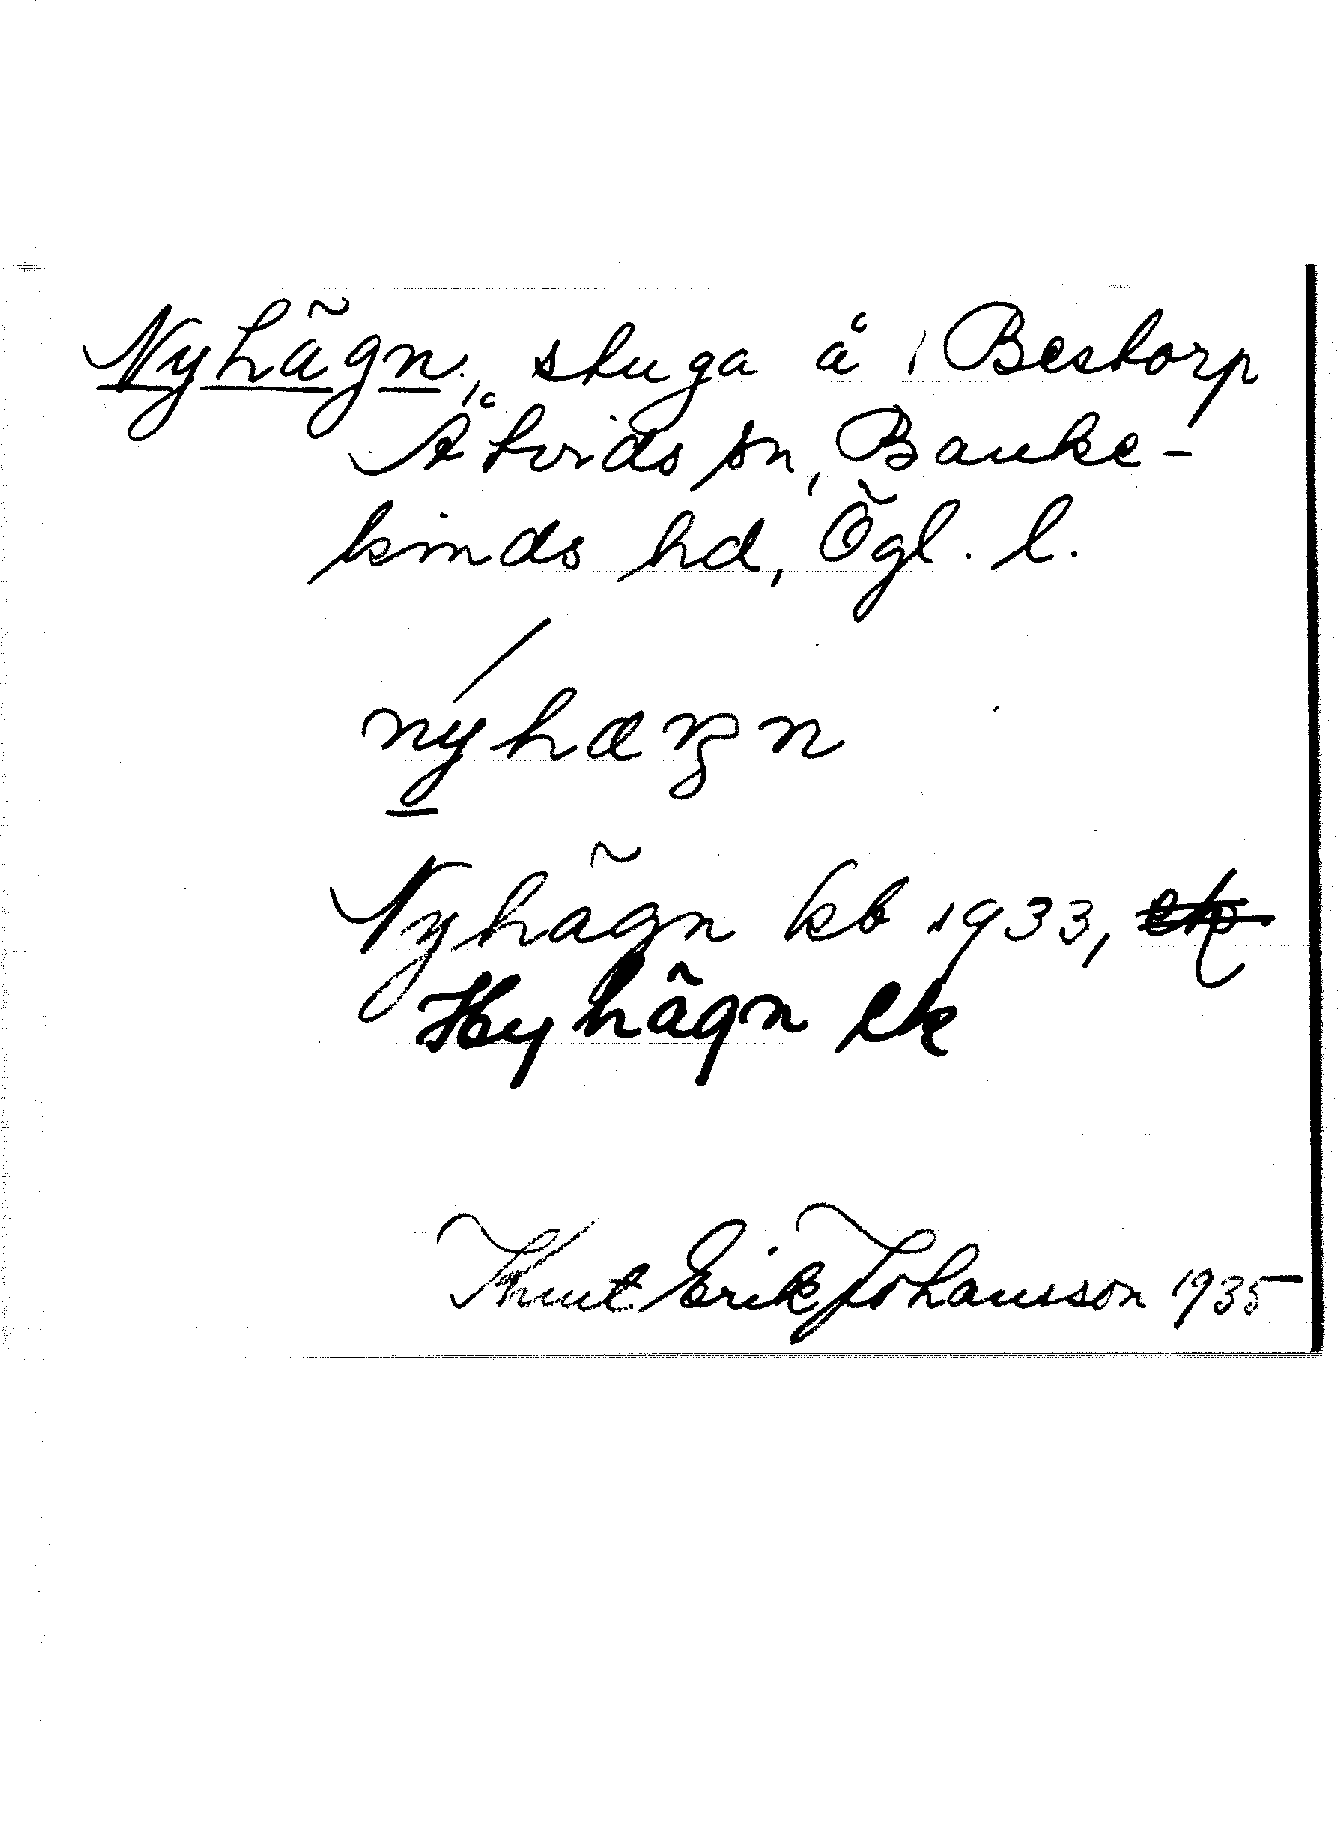 Nyhägn, stuga å Bestorp
Åtvids sn, Banke-
kinds hd, Ögl. l.
nyhæŋn
Nyhägn kb 1933,
Hyhägn ek
Knut Erik Johansson 1935